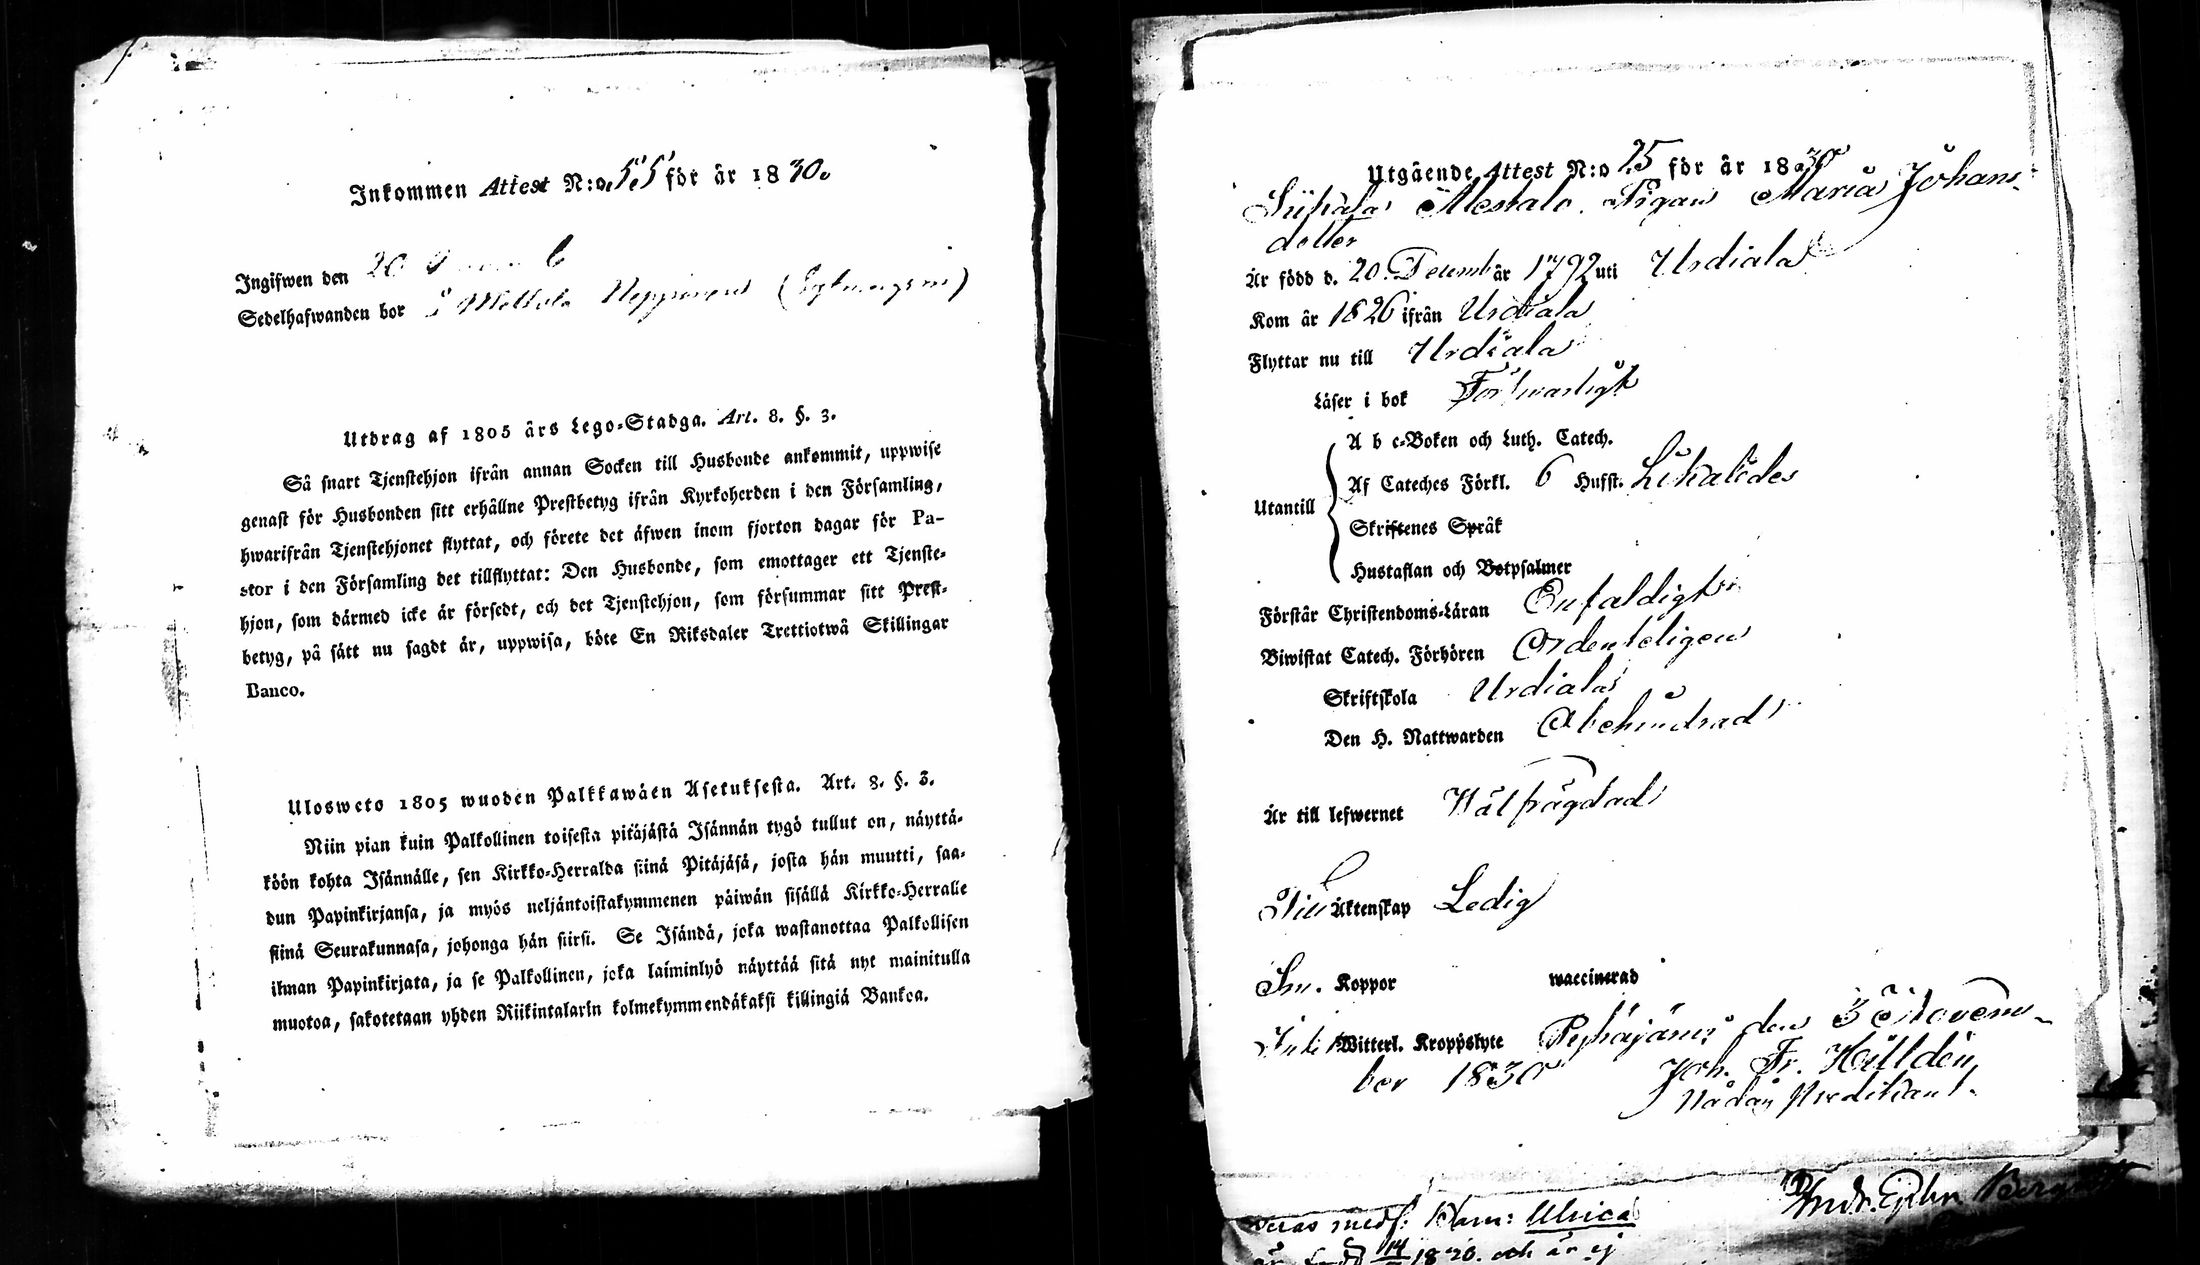 Inkommen Attest N:o 55 för år 1830.
Ingifwen den 20
Sedelhafwanden bor i Mellola
Utdrag af 1805 års Lego-Stadga. Art. 8. §. 3.
Så snart Tjenstehjon ifrån annan Socken till Husbonde ankommit, uppwise
genast för Husbonden sitt erhållne Prestbetyg ifrån Kyrkoherden i den Församling,
hwarifrån Tjenstehjonet flyttat, och förete det äfwen inom fjorton dagar för Pa-
stor i den Församling det tillflyttat: Den Husbonde, som emottager ett Tjenste-
hjon, som därmed icke är försedt, och det Tjenstehjon, som försummar sitt Prest-
betyg, på sätt nu sagdt är, uppwisa, böte En Riksdaler Trettiotwå Skillingar
Banco.
Ulosweto 1805 wuoden Palkkawäen Asetuksesta. Art. 8. §. 3.
Niin pian kuin Palkollinen toisesta pitäjästä Isännän tygö tullut on, näyttä-
köön kohta Isännälle, sen Kirkko-Herralda siinä Pitäjäsä, josta hän muutti, saa-
dun Papinkirjansa, ja myös neljäntoistakymmenen päiwän sisällä Kirkko-Herralle
siinä Seurakunnasa, johonga hän siirsi. Se Isändä, joka wastanottaa Palkollisen
ilman Papinkirjata, ja se Palkollinen, joka laiminlyö näyttää sitä nyt mainitulla
muotoa, sakotetaan yhden Riikintalarin kolmekymmendäkaksi killingiä Bankoa.
Utgående Attest N:o 25 för år 1830
Pigan Maria Johans-
dotter
Är född d. 20 Decemb år 1792 uti Urdiala
Kom år 1826 ifrån Urdiala
Flyttar nu till Urdiala
Läser i bok Förswarligt
A b c-Boken och Luth. Catech.
Utantill Af Cateches Förkl. 6 Hufst. Likaledes
Skriftenes Språk
Hustaflan och Botpsalmer
Förstår Christendoms-Läran Enfaldigt
Biwistat Catech. Förhören Ordenteligen
Skriftskola Urdiala
Den H. Nattwarden Obehindrad
Är till lefwernet Wälfrägdad
Till Äktenskap Ledig
Koppor waccinerad
Witterl. Kroppslyte Pyhäjärvi den 3 Novem-
ber 1830 Joh. Fr. Hälldén
Nådår Predikant.
medf: Barn: Ulrica
är född 14 1820. och är ej